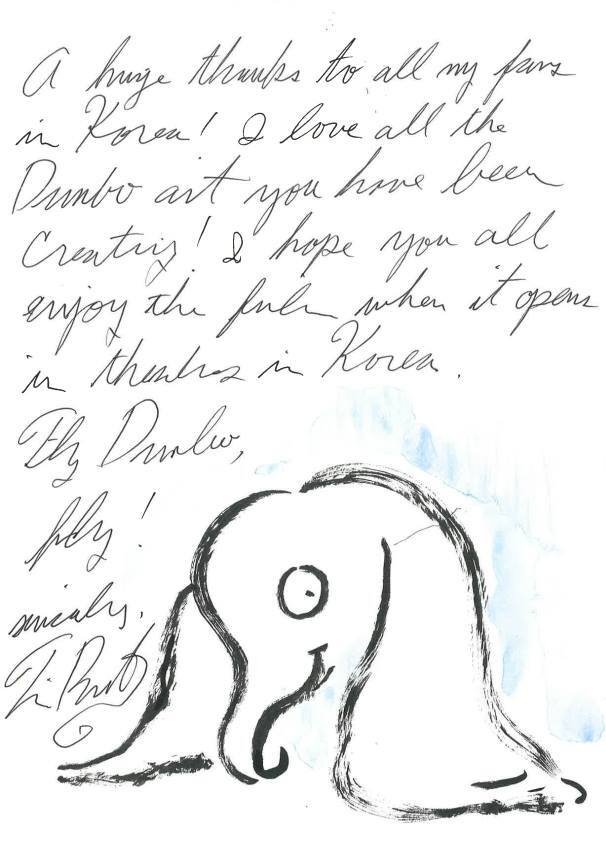 A huge thanks to all my fans
in Korea! I love all the
Dumbo art you have been
Creating! I hope you all
enjoy the film when it opens
in theatres in Korea.
Fly Dumbo,
fly!
sincerely,
Tim Burton